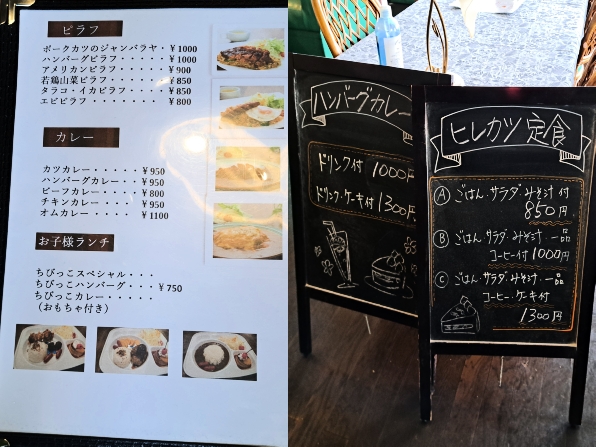 ピラフ
ポークカツのジャンバラヤ・￥1000
ハンバーグピラフ・・・・・￥1000
アメリカンピラフ・・・・・￥900
若鶏山菜ピラフ・・・・・・￥850
タラコ・イカピラフ・・・・￥850
エビピラフ・・・・・・・・￥800
カレー
カツカレー・・・・・￥950
ハンバーグカレー・・￥950
ビーフカレー・・・・￥800
チキンカレー・・・・￥950
オムカレー・・・・￥1100
お子様ランチ
ちびっこスペシャル・・・
ちびっこハンバーグ・・・￥750
ちびっこカレー・・・・・
（おもちゃ付き）
ハンバーグカレー
ドリンク付 1000円
ドリンク・ケーキ付 1300円
ヒレカツ定食
Ⓐ ごはん・サラダ・みそ汁 付
850円
Ⓑ ごはん・サラダ・みそ汁・一品
コーヒー付 1000円
Ⓒ ごはん・サラダ・みそ汁・一品
コーヒー・ケーキ付
1300円